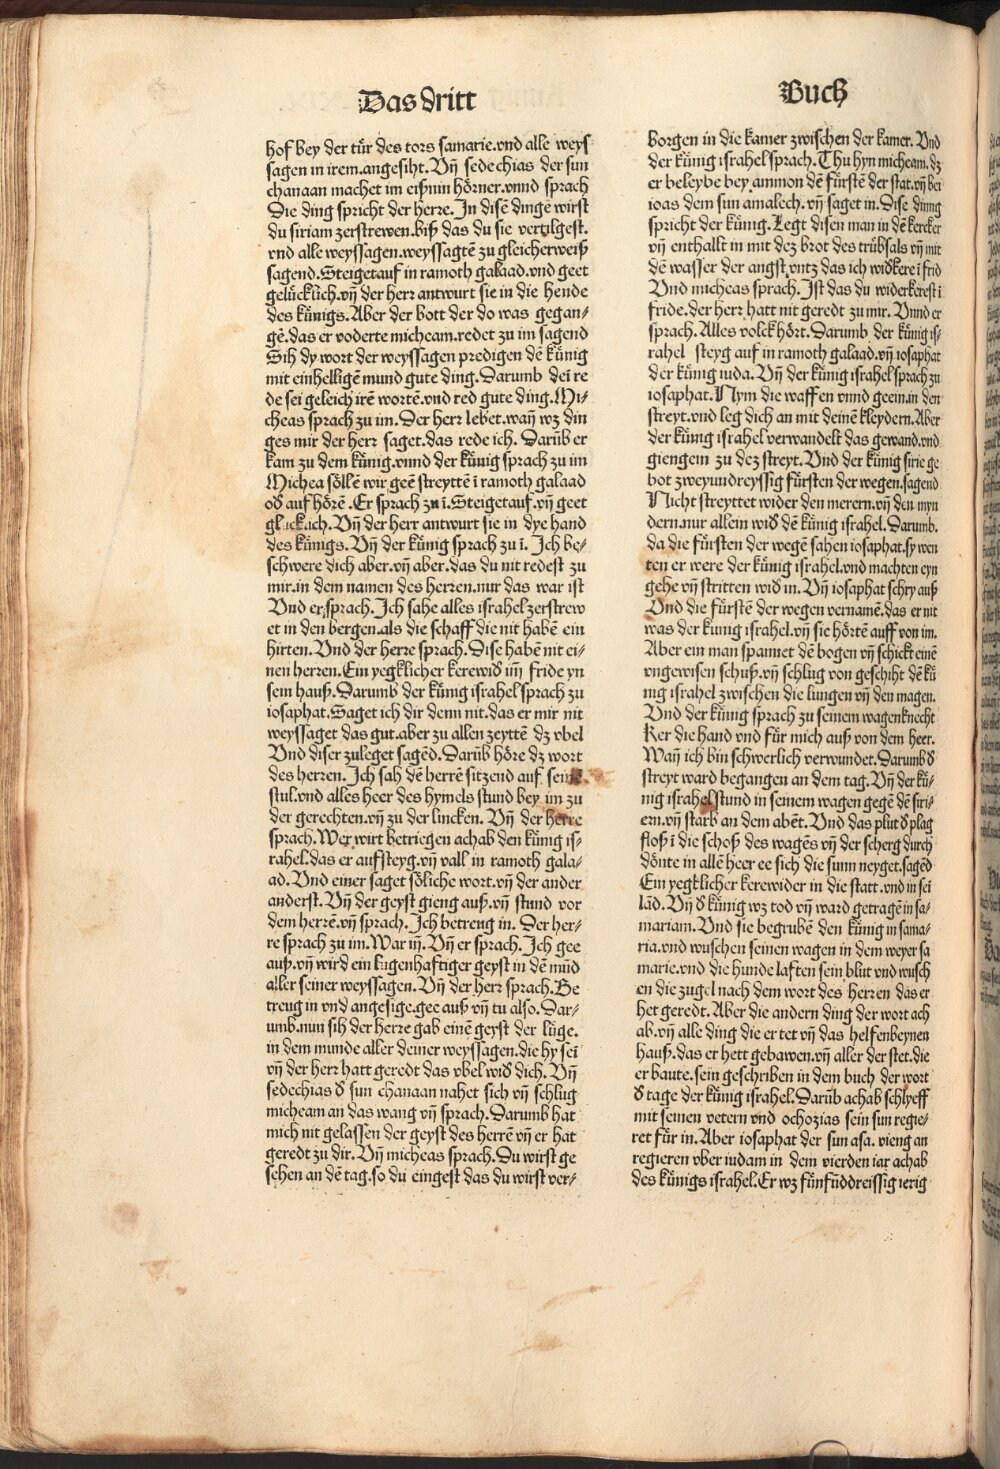 Das dritt
Buch
hof bey der tür des tors samarie.vnd alle weys
sagen in irem.angesiht.Vñ sedechias der sun
chanaan machet im eißnin hörner.vnnd sprach
Die ding spricht der herre.In disẽ dingẽ wirst
du siriam zerstrewen.biß das du sie vertilgest.
vnd alle weyssagen.weyssagtẽ zu gleicherweiß
sagend.Steigetauf in ramoth galaad.vnd geet
gelücklich.vñ der herr antwurt sie in die hende
des künigs.Aber der bott der do was gegan⸗
gẽ.das er voderte micheam.redet zu im sagend
Sih dy wort der weyssagen predigen dẽ künig
mit einhelligẽ mund gute ding.Darumb dei re
de sei geleich irẽ wortẽ.vnd red gute ding.Mi⸗
cheas sprach zu im.Der herr lebet.wañ wz din
ges mir der herr saget.das rede ich. Darũb er
kam zu dem künig.vnnd der künig sprach zu im
Michea söllẽ wir geẽ streyttẽ ĩ ramoth galaad
oď auf hörẽ .Er sprach zu ĩ.Steigetauf.vñ geet
Vñ der herr antwurt sie in dye hand
des künigs.Vñ der künig sprach zu ĩ. Ich be⸗
schwere dich aber.vñ aber.das du nit redest zu
mir.in dem namen des herren.nur das war ist
Vnd er sprach.Ich sahe alles israhel zerstrew
et in den bergen.als die schaff die nit habẽ ein
hirten.Vnd der herre sprach.Dise habẽ nit ei⸗
nen herren.Ein yegklicher kerewiď fride yn
sein hauß.Darumb der künig israhel sprach zu
iosaphat.Saget ich dir denn nit.das er mir nit
weyssaget das gut.aber zu allen zeyttẽ dz vbel
Vnd diser zuleget sagẽd.Darũb höre dz wort
des herren. Ich sah dẽ herrẽ sitzend auf
stul.vnd alles heer des hymels stund bey im zu
der gerechten.vñ zu der lincken. Vñ der herre
sprach.Wer wirt betriegen achab den künig is⸗
rahel.das er aufsteyg.vñ vall in ramoth gala⸗
ad.Vnd einer saget söliche wort.vñ der ander
anderst.Vñ der geyst gieng auß.vñ stund vor
dem herrẽ.vñ sprach.Ich betreug in. Der her⸗
re sprach zu im.War iñ.Vñ er sprach.Ich gee
auß.vñ wird ein lugenhaftiger geyst in dẽ mũd
aller seiner weyssagen.Vñ der herr sprach.Be
treug in vnd angesige.gee auß vñ tu also.Dar⸗
umb.nun sih der herre gab einẽ geyst der lüge.
in dem munde aller deiner weyssagen.die hy sei
vñ der herr hatt geredt das vbel wiď dich. Vñ
sedechias ď sun chanaan nahet sich vñ schlug
micheam an das wang vñ sprach.Darumb hat
mich nit gelassen der geyst des herrẽ vñ er hat
geredt zu dir.Vñ micheas sprach.Du wirst ge
sehen an dẽ tag.so du eingest das du wirst ver⸗
borgen in die kamer zwischen der kamer. Vnd
der künig israhel sprach.Thu hyn micheam.dz
er beleybe bey ammon dẽ fürstẽ der stat.vñ bei
ioas dem sun amalech.vñ saget in.Dise ding
spricht der künig.Legt disen man in dẽ kercker
vñ enthallt in mit dez brot des trübsals vñ mit
dẽ wasser der angst.vntz das ich wiďkere ĩ frid
Vnd micheas sprach.Ist das du widerkerest ĩ
fride.der herr hatt nit geredt zu mir. Vnnd er
sprach.Alles volck hört.Darumb der künig is⸗
rahel steyg auf in ramoth galaad.vñ iosaphat
der künig iuda. Vñ der künig israhel sprach zu
iosaphat.Nym die waffen vnnd geein.in den
streyt.vnd leg dich an mit deinẽ kleydern.Aber
der künig israhel verwandelt das gewand.vnd
giengein zu dez streyt.Vnd der künig sirie ge
bot zweyundreyssig fürsten der wegen.sagend
Nicht streyttet wider den merern.vñ den myn
dern.nur allein wiď dẽ künig israhel.Darumb.
da die fürsten der wegẽ sahen iosaphat.sy wen
ten er were der künig israhel.vnd machten eyn
gehe vñ stritten wiď in. Vñ iosaphat schry auß
Vnd die fürstẽ der wegen vernamẽ.das er nit
was der kunig israhel.vñ sie hörtẽ auff von im.
Aber ein man spannet dẽ bogen vñ schickt einẽ
vngewisen schuß.vñ schlug von geschiht dẽ kü
nig israhel zwischen die lungen vñ den magen.
Vnd der künig sprach zu seinem wagenknecht
Ker die hand vnd für mich auß von dem heer.
Wañ ich bin schwerlich verwundet.Darumb ď
streyt ward begangen an dem tag.Vñ der kü⸗
nig israhel stund in seinem wagen gegẽ dẽ siri⸗
ern.vñ starb an dem abẽt.Vnd das plut ď plag
floß ĩ die schoß des wagẽs vñ der scherg durch
dönte in allẽ heer ee sich die sunn neyget.sagẽd
Ein yegklicher kerewider in die statt.vnd in sei
lãd.Vñ ď künig wz tod vñ ward getragẽ in sa⸗
mariam.Vnd sie begrubẽ den künig in sama⸗
ria.vnd wuschen seinen wagen in dem weyer sa
marie.vnd die hunde laften sein blut vnd wusch
en die zugel nach dem wort des herren das er
het geredt.Aber die andern ding der wort ach
ab.vñ alle ding die er tet vñ das helfenbeynen
hauß.das er hett gebawen.vñ aller der stet.die
er baute.sein geschriben in dem buch der wort
ď tage der künig israhel.Darũb achab schlyeff
mit seinen vetern vnd ochozias sein sun regie⸗
ret für in.Aber iosaphat der sun asa. vieng an
regieren vber iudam in dem vierden iar achab
des künigs israhel.Er wz fünfũddreissig ierig